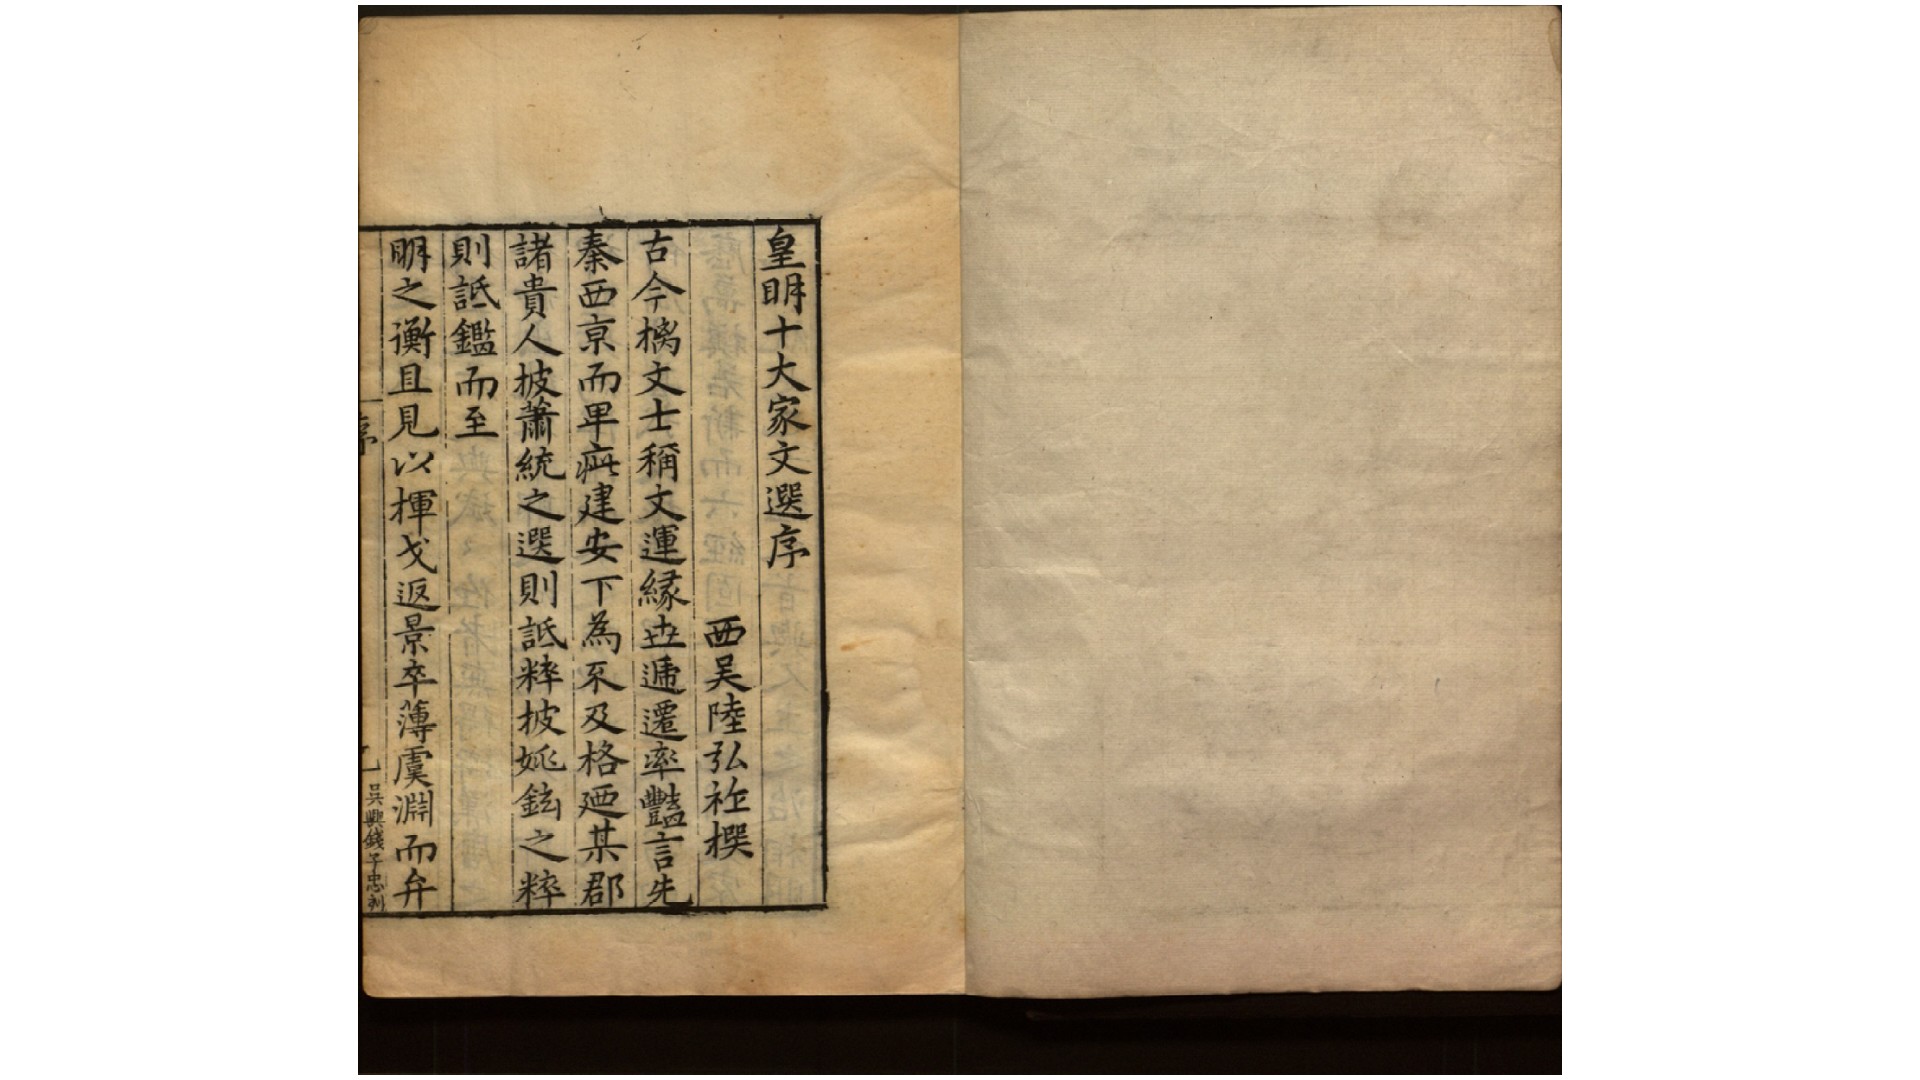 皇明十大家文選序
西吴陸弘祚撰
古今摛文士稱文運縁世遞遷率豔言先
秦西京而卑疵建安下為不及格廼某郡
諸貴人披蕭統之選則詆粹披姚鉉之粹
則詆鑑而至
明之衡且見以揮戈返景卒薄虞淵而弁
序
吳興錢子忠刻